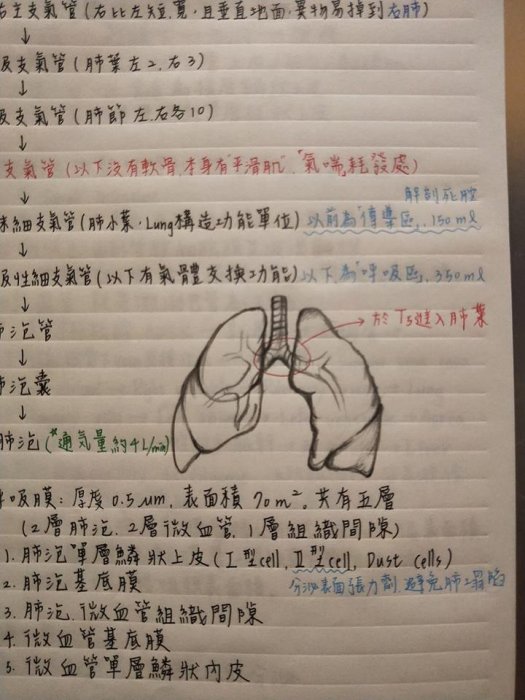 主支氣管(右比左短,寬,且垂直地面,異物易掉到右肺)
↓
支氣管(肺葉左2,右3)
↓
支氣管(肺節左,右各10)
↓
支氣管(以下沒有軟骨,本身有"平滑肌",「氣喘耗發處)
↓
解剖死腔
細支氣管(肺小葉,Lung構造功能單位)以前為"傳導區,150ml
↓
性細支氣管(以下有氣體交換功能)以下為"呼吸區,350ml
↓
泡管
於T5進入肺葉
↓
泡囊
↓
肺泡(*通氣量約4L/min)
吸膜:厚度0.5μm,表面積70m²,共有五層
(2層肺泡,2層微血管,1層組織間隙)
1.肺泡單層鱗狀上皮(I型cell,II型cell,Dust cells)
2.肺泡基底膜
分泌表面張力劑,避免肺塌陷
3.肺泡,微血管組織間隙
4.微血管基底膜
5.微血管單層鱗狀內皮